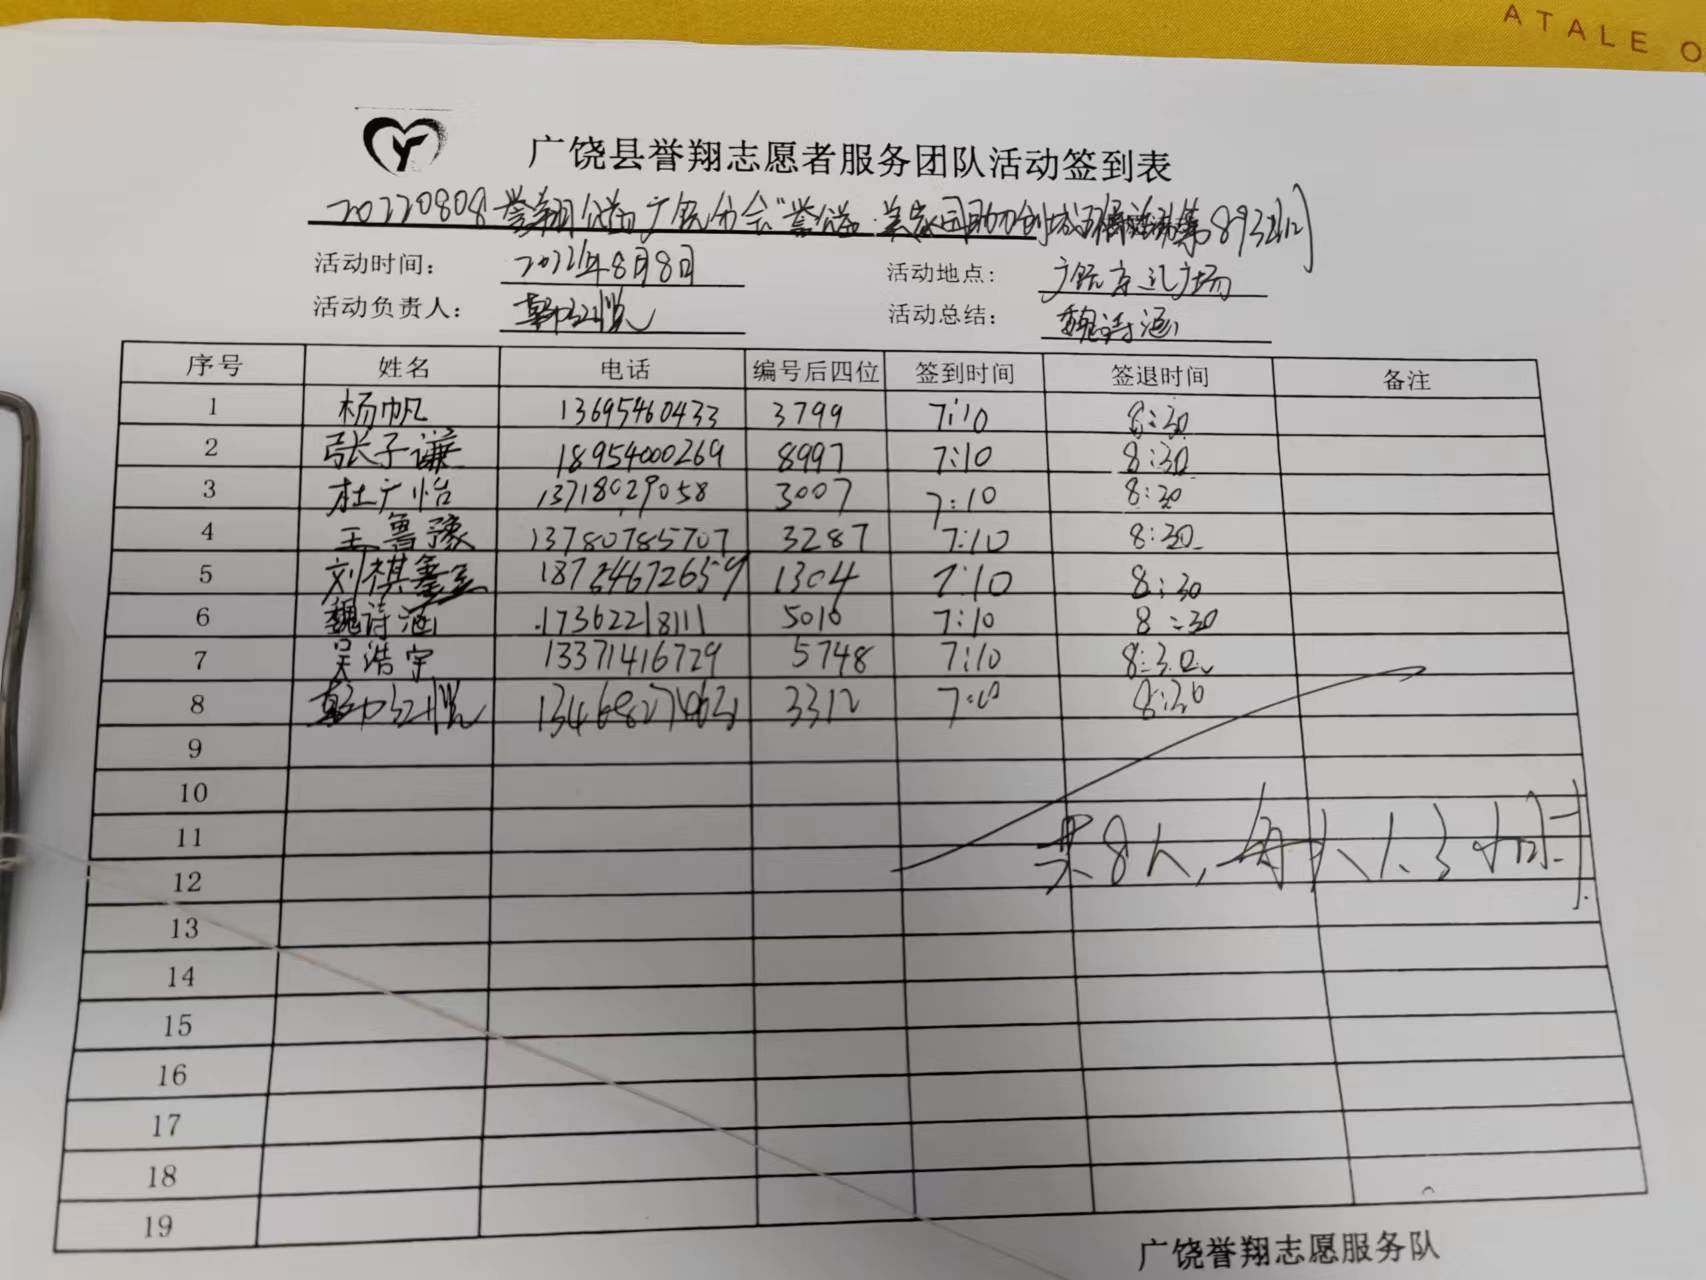 ATALE O
广饶县誉翔志愿者服务团队活动签到表
20220808誉翔公益广饶分会"誉公益·美家园助力创城 活动第893
活动时间： 2022年8月8日 活动地点： 广饶 广场
活动负责人： 韩红悦 活动总结： 魏诗涵
序号 姓名 电话 编号后四位 签到时间 签退时间 备注
1 杨帆 13695460433 3799 7:10 8:30
2 张子谦 18954000269 8997 7:10 8:30
3 杜广怡 13718029058 3007 7:10 8:30
4 王鲁豫 13780785707 3287 7:10 8:30
5 刘祺鑫 1304 7:10 8:30
6 魏诗涵 17362218111 5010 7:10 8:30
7 吴浩宇 13371416729 5748 7:10 8:30
8 韩红悦 3312 7:10 8:30
9
10
11
共8人，每人 3小时
12
13
14
15
16
17
18
19
广饶誉翔志愿服务队